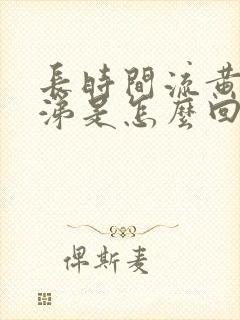 長時間流黃
涕是怎麼回
俾斯麦